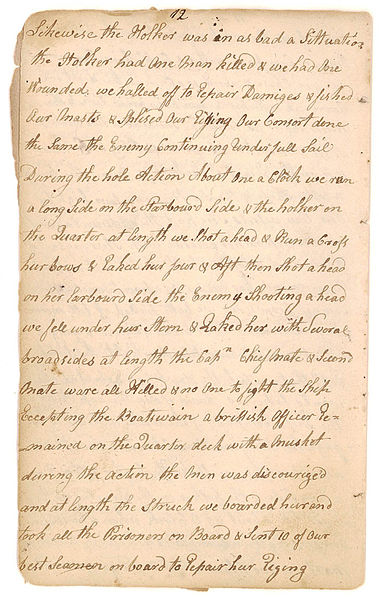 12
Likewise the Holker was in as bad a Sittuation
the Holker had One Man killed & we had One
Wounded. we halled off to Repair Damiges & fished
Our Masts & Splised Our Riging Our Consort done
the Same the Enemy Continuing Under full Sail
During the hole Action About One a Clock we run
a long Side on the Starbourd Side & the holker on
the Quarter at length we Shot a head & Run a Cross
hur bows & Raked hur four & Aft then Shot a head
on her larbourd Side the Enemy Shooting a head
we fell under hur Stern & Raked her with Several
broadsides at length the Capn Chief Mate & Second
Mate ware all Killed & no One to fight the Ship
Eccepting the Boatswain a brittish Officer Re-
-mained on the Quarter deck with a Musket
during the action the Men was discourized
and at length the Struck we boarded hur and
took all the Prisoners on Board & Sent 10 of Our
best Seamen on board to Repair hur Riging